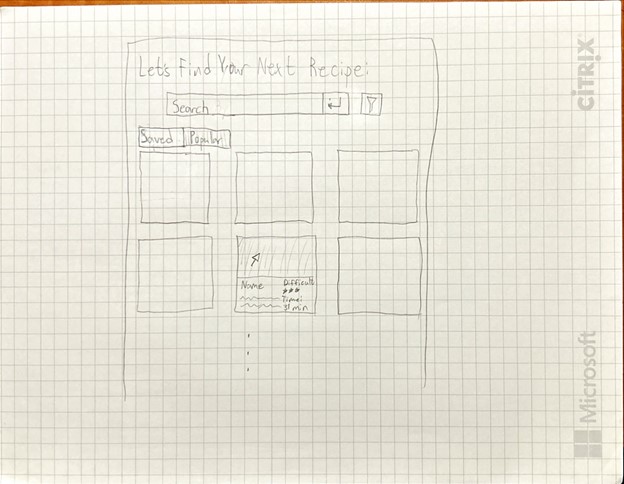 Let's Find Your Next Recipe:
Search :
Saved Popular
Name Difficulty
Time:
31 min
CITRIX
Microsoft